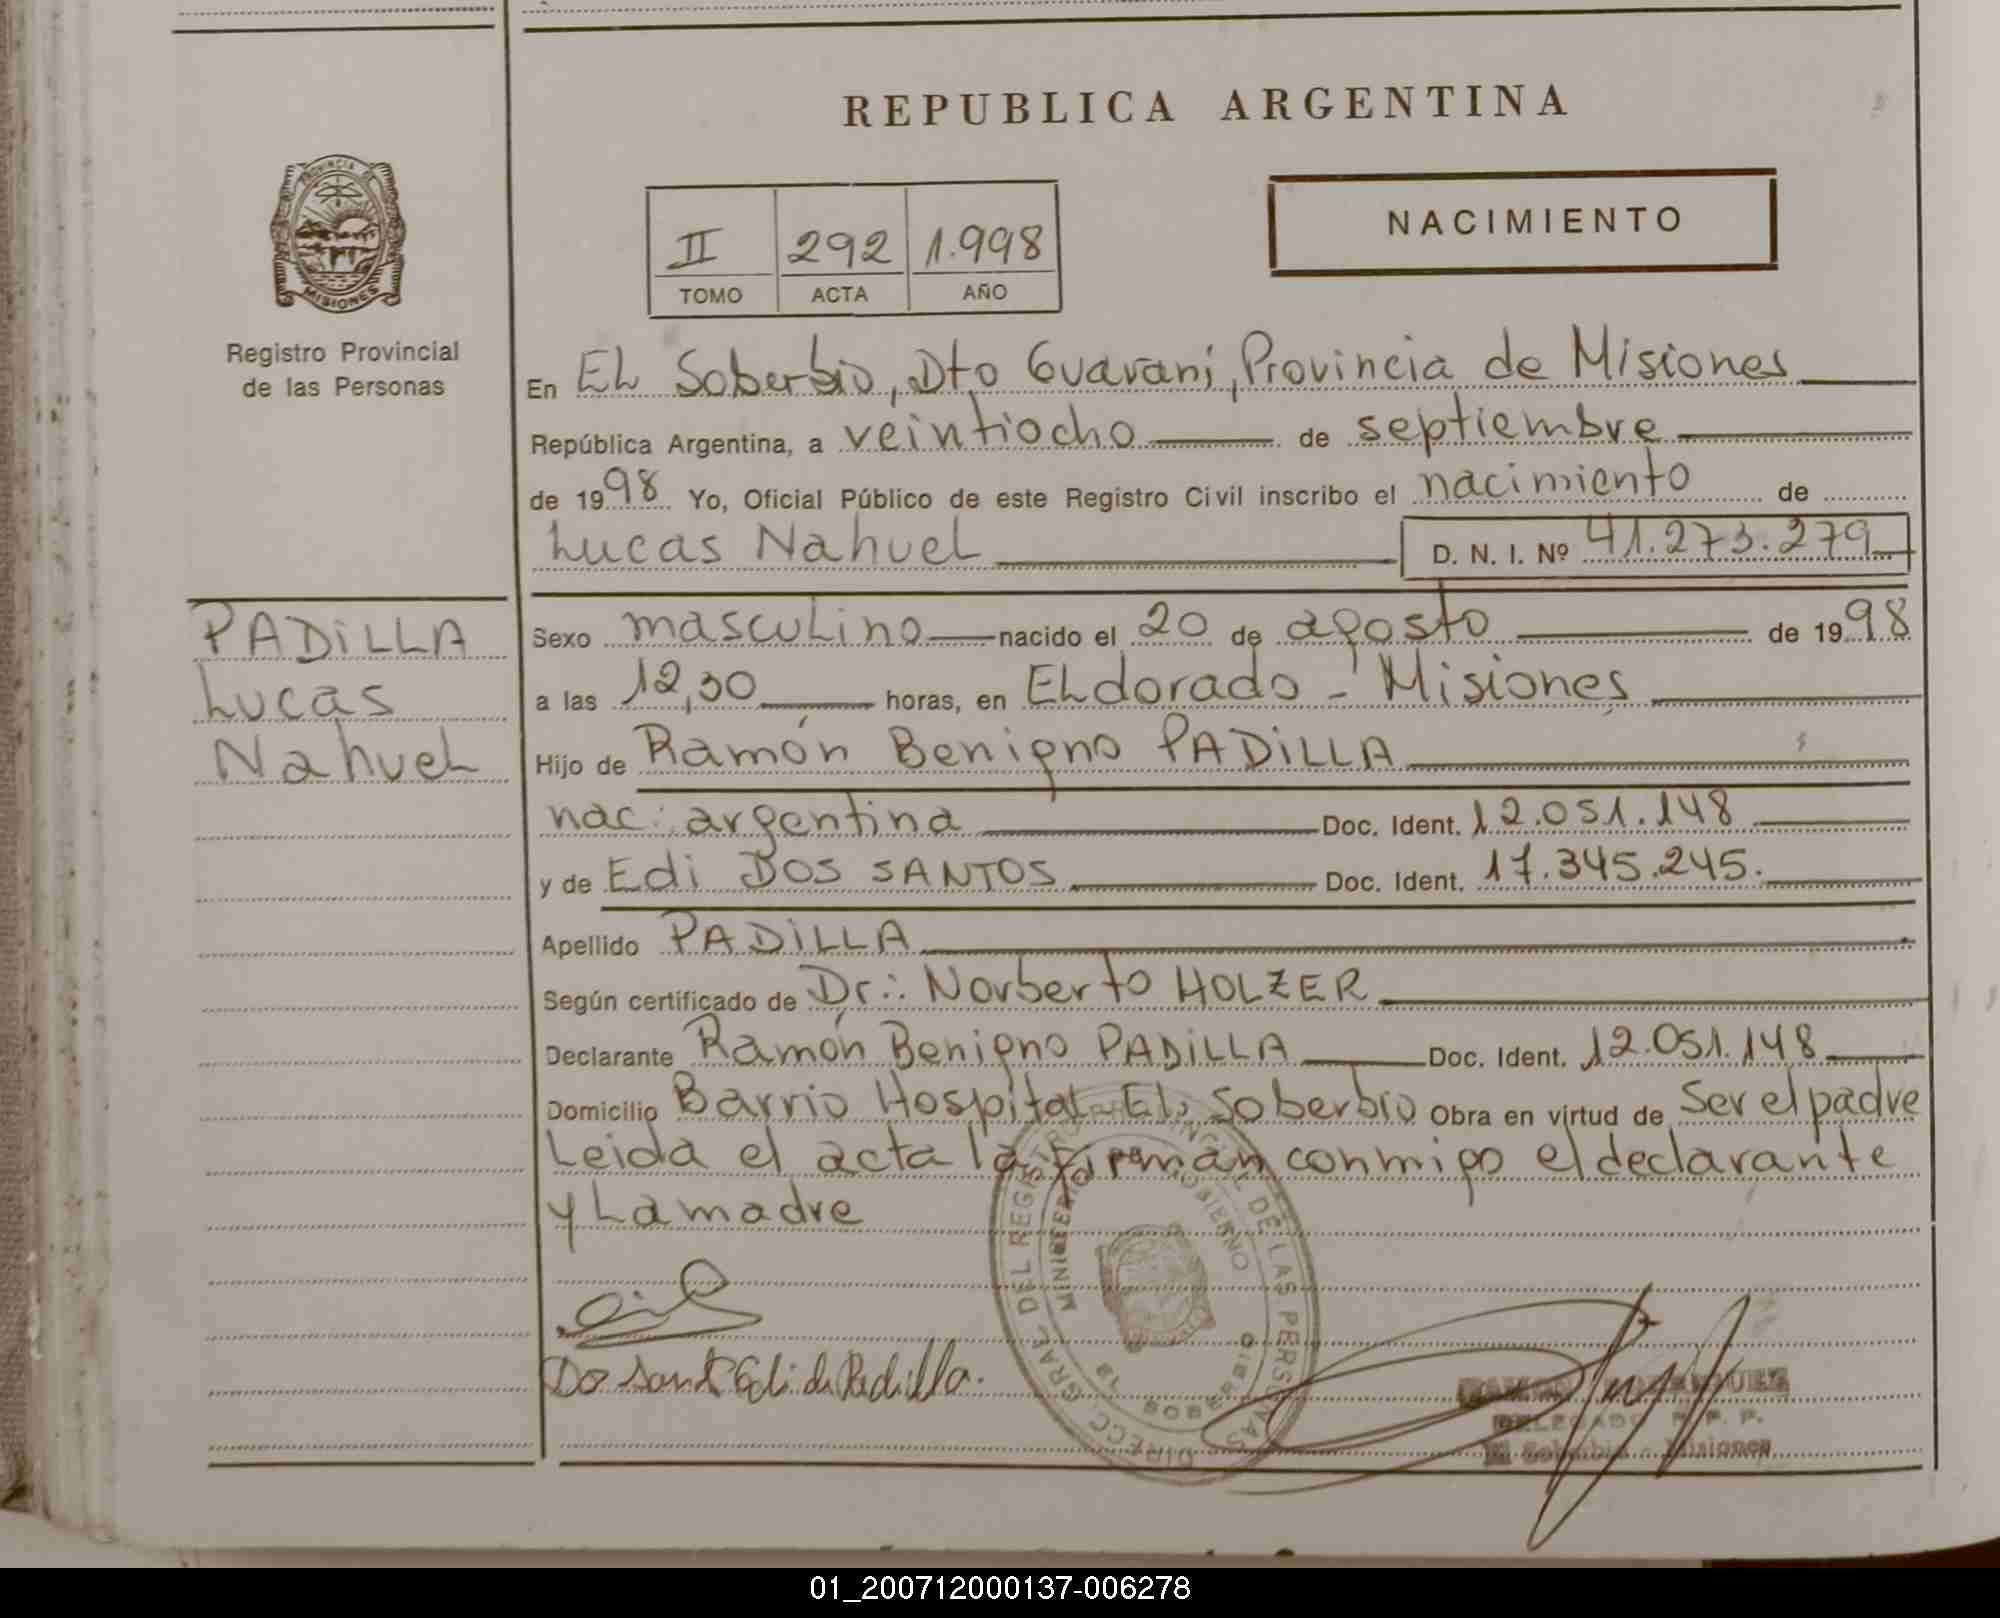 REPUBLICA ARGENTINA
NACIMIENTO
II 292 1.998
TOMO ACTA AÑO
PROVINCIA DE
MISIONES
Registro Provincial
de las Personas
En EL Soberbio, Dto Guaraní, Provincia de Misiones
República Argentina, a veintiocho de septiembre
de 1998 Yo, Oficial Público de este Registro Civil inscribo el nacimiento de
Lucas Nahuel D. N. I. Nº 41.273.279
PADiLLA
Lucas
Nahuel
Sexo masculino nacido el 20 de agosto de 1998
a las 12,30 horas, en ELdorado - Misiones
Hijo de Ramón Benigno PADiLLA
nac: argentina Doc. Ident. 12.051.148
y de Edi DOS SANTOS Doc. Ident. 17.345.245.
Apellido PADiLLA
Según certificado de Dr.: Norberto HOLZER
Declarante Ramón Benigno PADiLLA Doc. Ident. 12.051.148
Domicilio Barrio Hospital EL Soberbio Obra en virtud de Ser el padre
Leida el acta la firman conmigo el declarante
y La madre
DIRECC. GRAL. DEL REGISTRO PROVINCIAL DE LAS PERSONAS
MINISTERIO GOBIERNO
SOBERBIO
Edi de Padilla.
DELEGADO R. P. P.
El Soberbio - Misiones
01_200712000137-006278